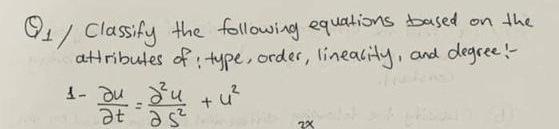 Q1/ Classify the following equations based on the
attributes of : type, order, linearity, and degree :-
1- ∂u/∂t = ∂²u/∂s² + u²
2x